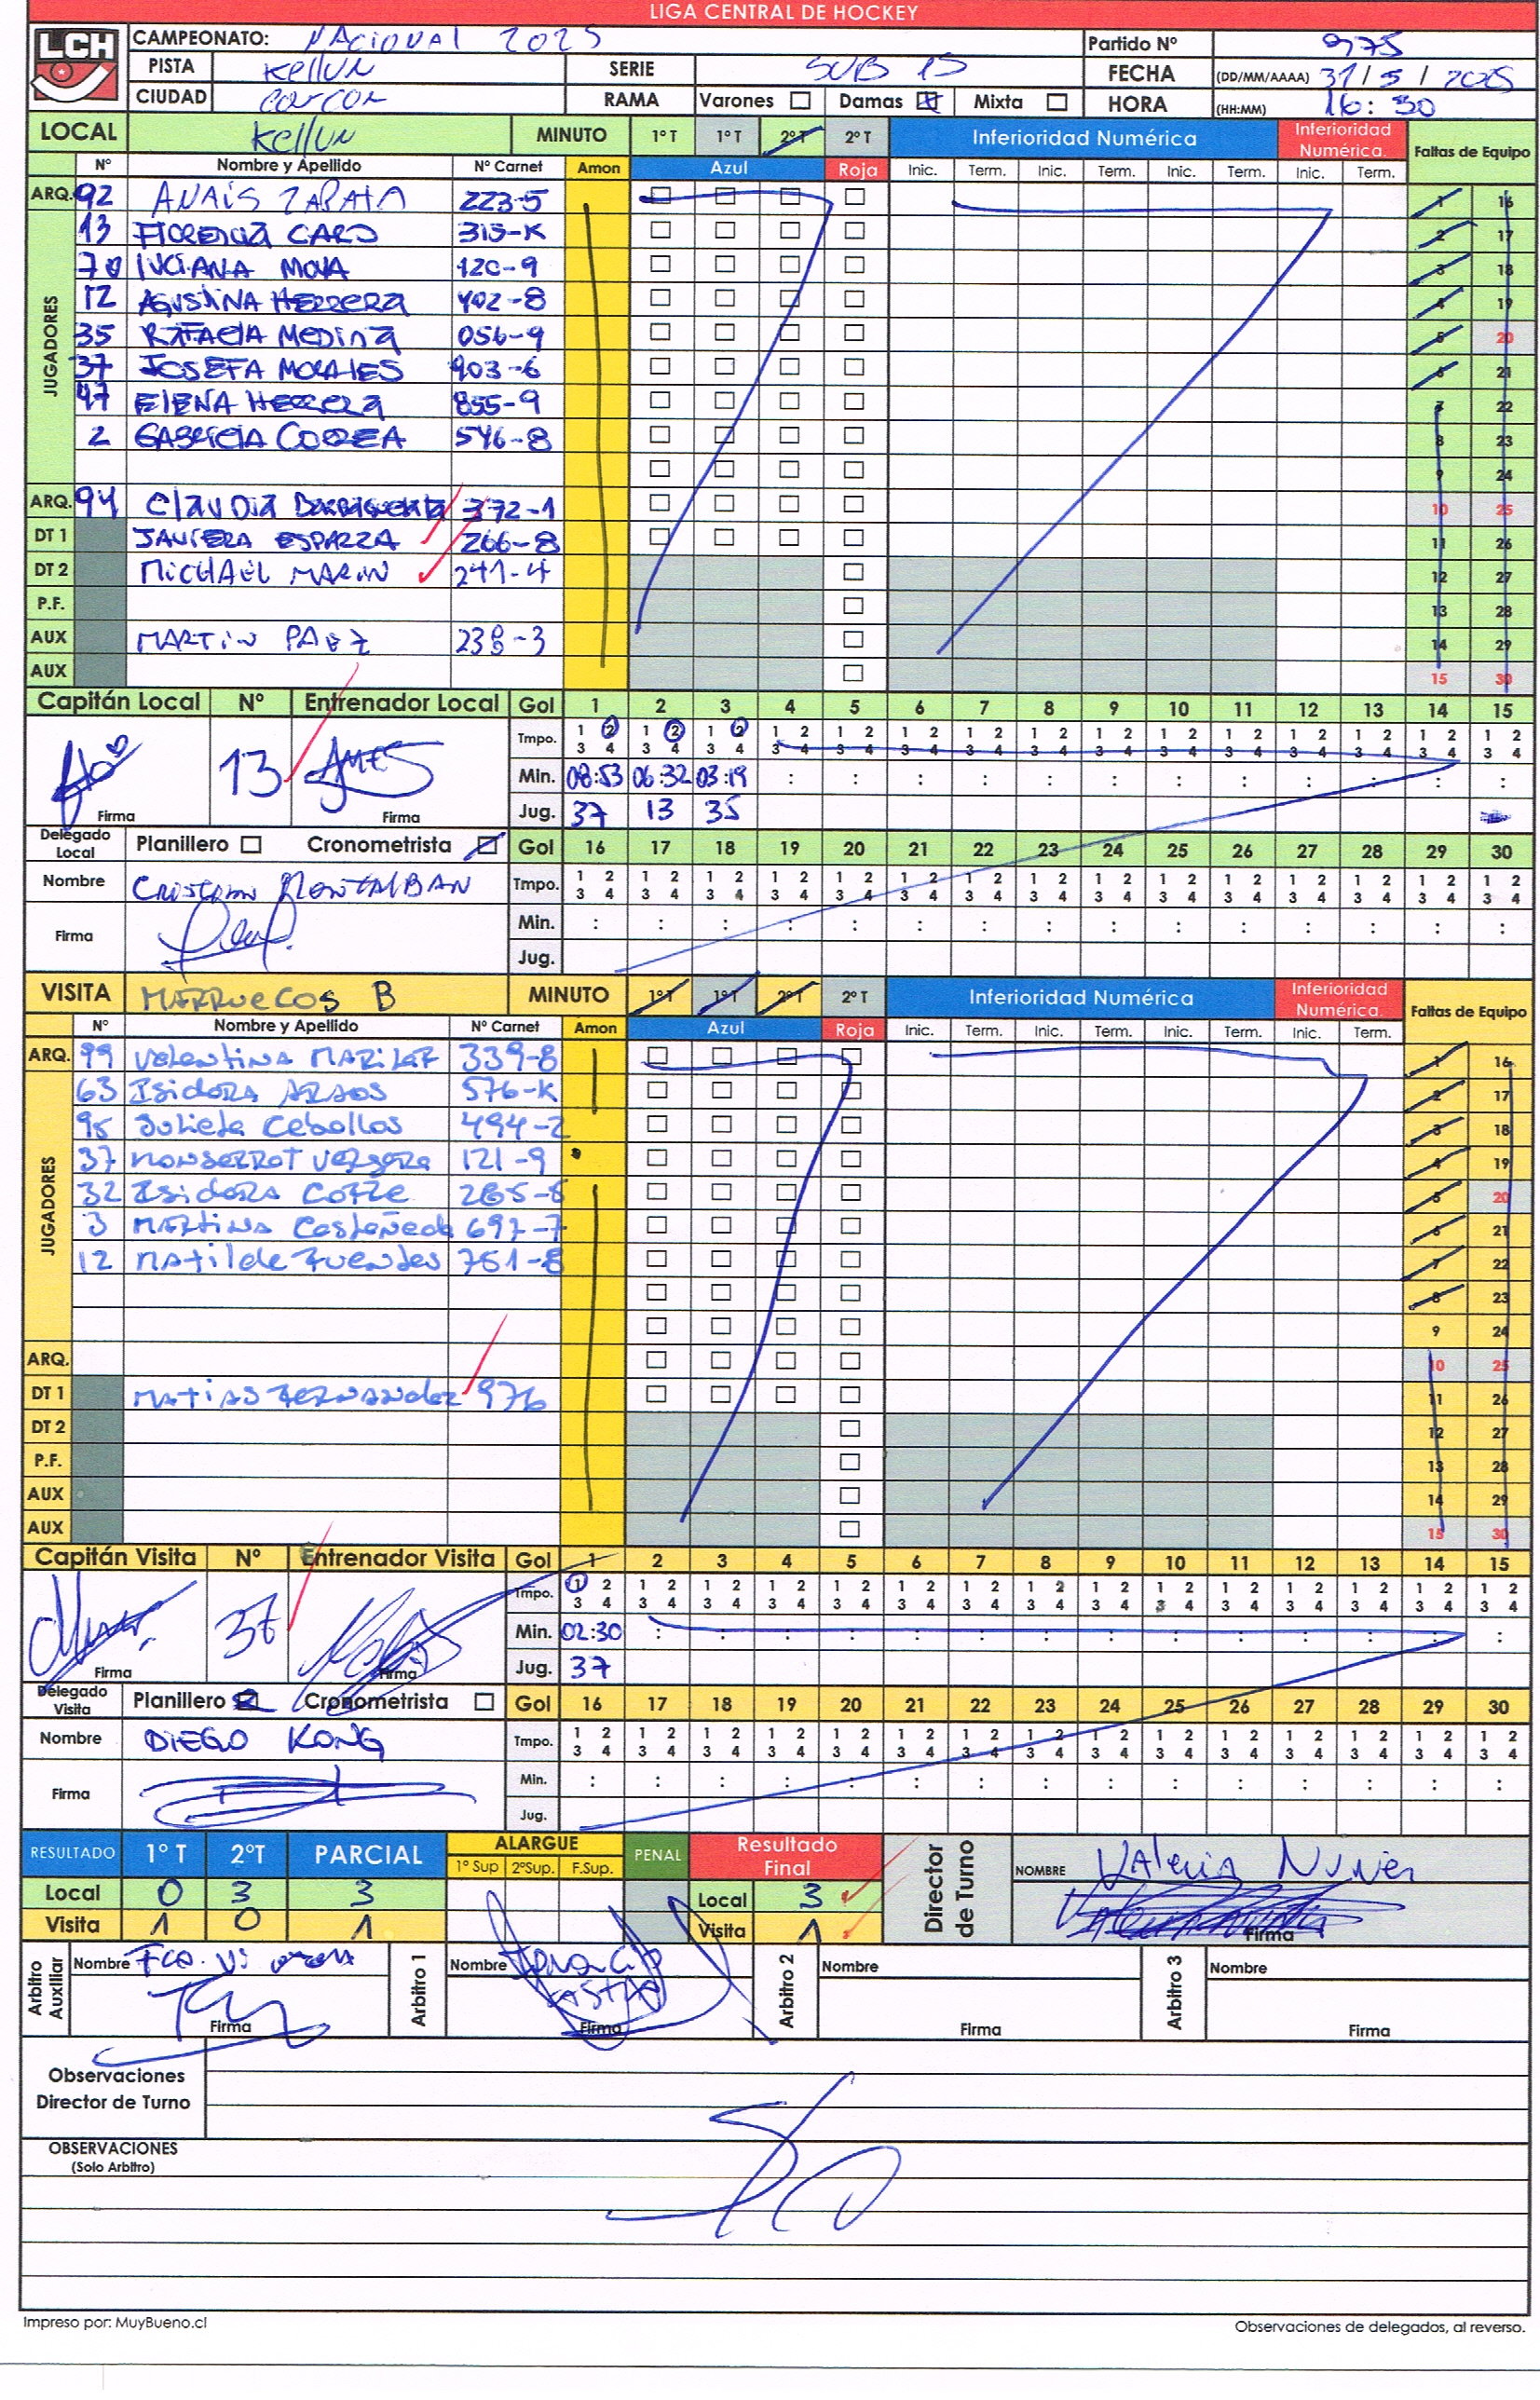 LIGA CENTRAL DE HOCKEY
LCH
CAMPEONATO: NACIONAL 2025 Partido Nº 975
PISTA Kellun SERIE SUB 15 FECHA (DD/MM/AAAA) 31/5/2025
CIUDAD concon RAMA Varones Damas Mixta HORA (HH:MM) 16:30
LOCAL Kellun MINUTO 1º T 1º T 2º T 2º T Inferioridad Numérica Inferioridad Numérica. Faltas de Equipo
Nº Nombre y Apellido Nº Carnet Amon Azul Roja Inic. Term. Inic. Term. Inic. Term. Inic. Term.
ARQ. 92 ANAÍS ZAPATA 223-5 1 16
JUGADORES
13 FIORENCIA CARO 315-K 2 17
70 LUCIANA MOYA 120-9 3 18
12 AGUSTINA HERRERA 402-8 4 19
35 RAFAELA MEDINA 056-9 5 20
37 JOSEFA MORALES 903-6 6 21
47 ELENA HERRERA 855-9 7 22
2 GABRIELA CORREA 546-8 8 23
9 24
ARQ. 94 CLAUDIA 372-1 10 25
DT 1 JAVIERA ESPARZA 266-8 11 26
DT 2 MICHAEL MARIN 241-4 12 27
P.F. 13 28
AUX MARTIN PAEZ 238-3 14 29
AUX 15 30
Capitán Local Nº Entrenador Local Gol 1 2 3 4 5 6 7 8 9 10 11 12 13 14 15
13
Tmpo. 1 2 3 4 1 2 3 4 1 2 3 4 1 2 3 4 1 2 3 4 1 2 3 4 1 2 3 4 1 2 3 4 1 2 3 4 1 2 3 4 1 2 3 4 1 2 3 4 1 2 3 4 1 2 3 4 1 2 3 4
Min. 08:53 06:32 03:19 : : : : : : : : : : : :
Firma Firma Jug. 37 13 35
Delegado Local Planillero Cronometrista Gol 16 17 18 19 20 21 22 23 24 25 26 27 28 29 30
Nombre CRISTIAN MONTALBAN Tmpo. 1 2 3 4 1 2 3 4 1 2 3 4 1 2 3 4 1 2 3 4 1 2 3 4 1 2 3 4 1 2 3 4 1 2 3 4 1 2 3 4 1 2 3 4 1 2 3 4 1 2 3 4 1 2 3 4 1 2 3 4
Firma Min. : : : : : : : : : : : : : : :
Jug.
VISITA MARRUECOS B MINUTO 1º T 1º T 2º T 2º T Inferioridad Numérica Inferioridad Numérica. Faltas de Equipo
Nº Nombre y Apellido Nº Carnet Amon Azul Roja Inic. Term. Inic. Term. Inic. Term. Inic. Term.
ARQ. 99 Valentina 339-8 1 16
JUGADORES
63 Isidora ARAOS 576-K 2 17
95 Julieta Ceballos 494-2 3 18
37 Monserrat Vergara 121-9 4 19
32 Isidora 265-8 5 20
3 Martina Castañeda 697-7 6 21
12 Matilde Fuentes 751-8 7 22
8 23
9 24
ARQ. 10 25
DT 1 Matias Fernandez 976 11 26
DT 2 12 27
P.F. 13 28
AUX 14 29
AUX 15 30
Capitán Visita Nº Entrenador Visita Gol 1 2 3 4 5 6 7 8 9 10 11 12 13 14 15
37
Tmpo. 1 2 3 4 1 2 3 4 1 2 3 4 1 2 3 4 1 2 3 4 1 2 3 4 1 2 3 4 1 2 3 4 1 2 3 4 1 2 3 4 1 2 3 4 1 2 3 4 1 2 3 4 1 2 3 4 1 2 3 4
Min. 02:30 : : : : : : : : : : : : : :
Firma Firma Jug. 37
Delegado Visita Planillero Cronometrista Gol 16 17 18 19 20 21 22 23 24 25 26 27 28 29 30
Nombre DIEGO KONG Tmpo. 1 2 3 4 1 2 3 4 1 2 3 4 1 2 3 4 1 2 3 4 1 2 3 4 1 2 3 4 1 2 3 4 1 2 3 4 1 2 3 4 1 2 3 4 1 2 3 4 1 2 3 4 1 2 3 4 1 2 3 4
Firma Min. : : : : : : : : : : : : : : :
Jug.
RESULTADO 1º T 2ºT PARCIAL ALARGUE 1º Sup 2ºSup. F.Sup. PENAL Resultado Final Director de Turno NOMBRE Valeria Nuñez
Local 0 3 3 Local 3
Visita 1 0 1 Visita 1 Firma
Arbitro Auxiliar Nombre Fco. Arbitro 1 Nombre Arbitro 2 Nombre Arbitro 3 Nombre
Firma Firma Firma Firma
Observaciones Director de Turno
OBSERVACIONES (Solo Arbitro)
S/O
Impreso por: MuyBueno.cl Observaciones de delegados, al reverso.